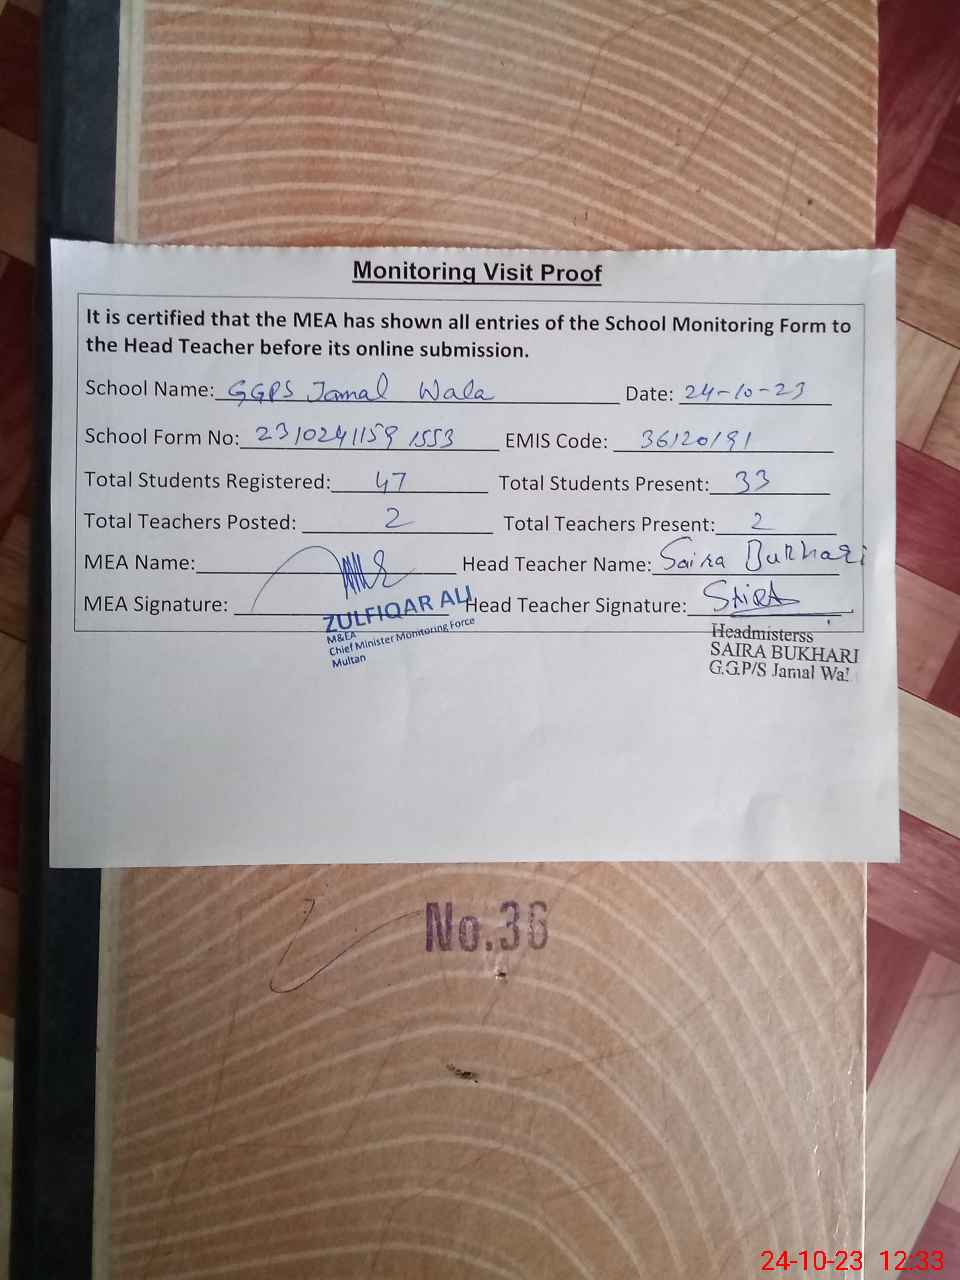 Monitoring Visit Proof
It is certified that the MEA has shown all entries of the School Monitoring Form to
the Head Teacher before its online submission.
School Name: GGPS Jamal Wala Date: 24-10-23
School Form No: 2310241159 1553 EMIS Code: 36120191
Total Students Registered: 47 Total Students Present: 33
Total Teachers Posted: 2 Total Teachers Present: 2
MEA Name: Head Teacher Name: Saira Bukhari
MEA Signature: Head Teacher Signature: SAIRA
ZULFIQAR ALI
M&EA
Chief Minister Monitoring Force
Multan
Headmisterss
SAIRA BUKHARI
G.G.P/S Jamal Wal
No.36
24-10-23 12:33